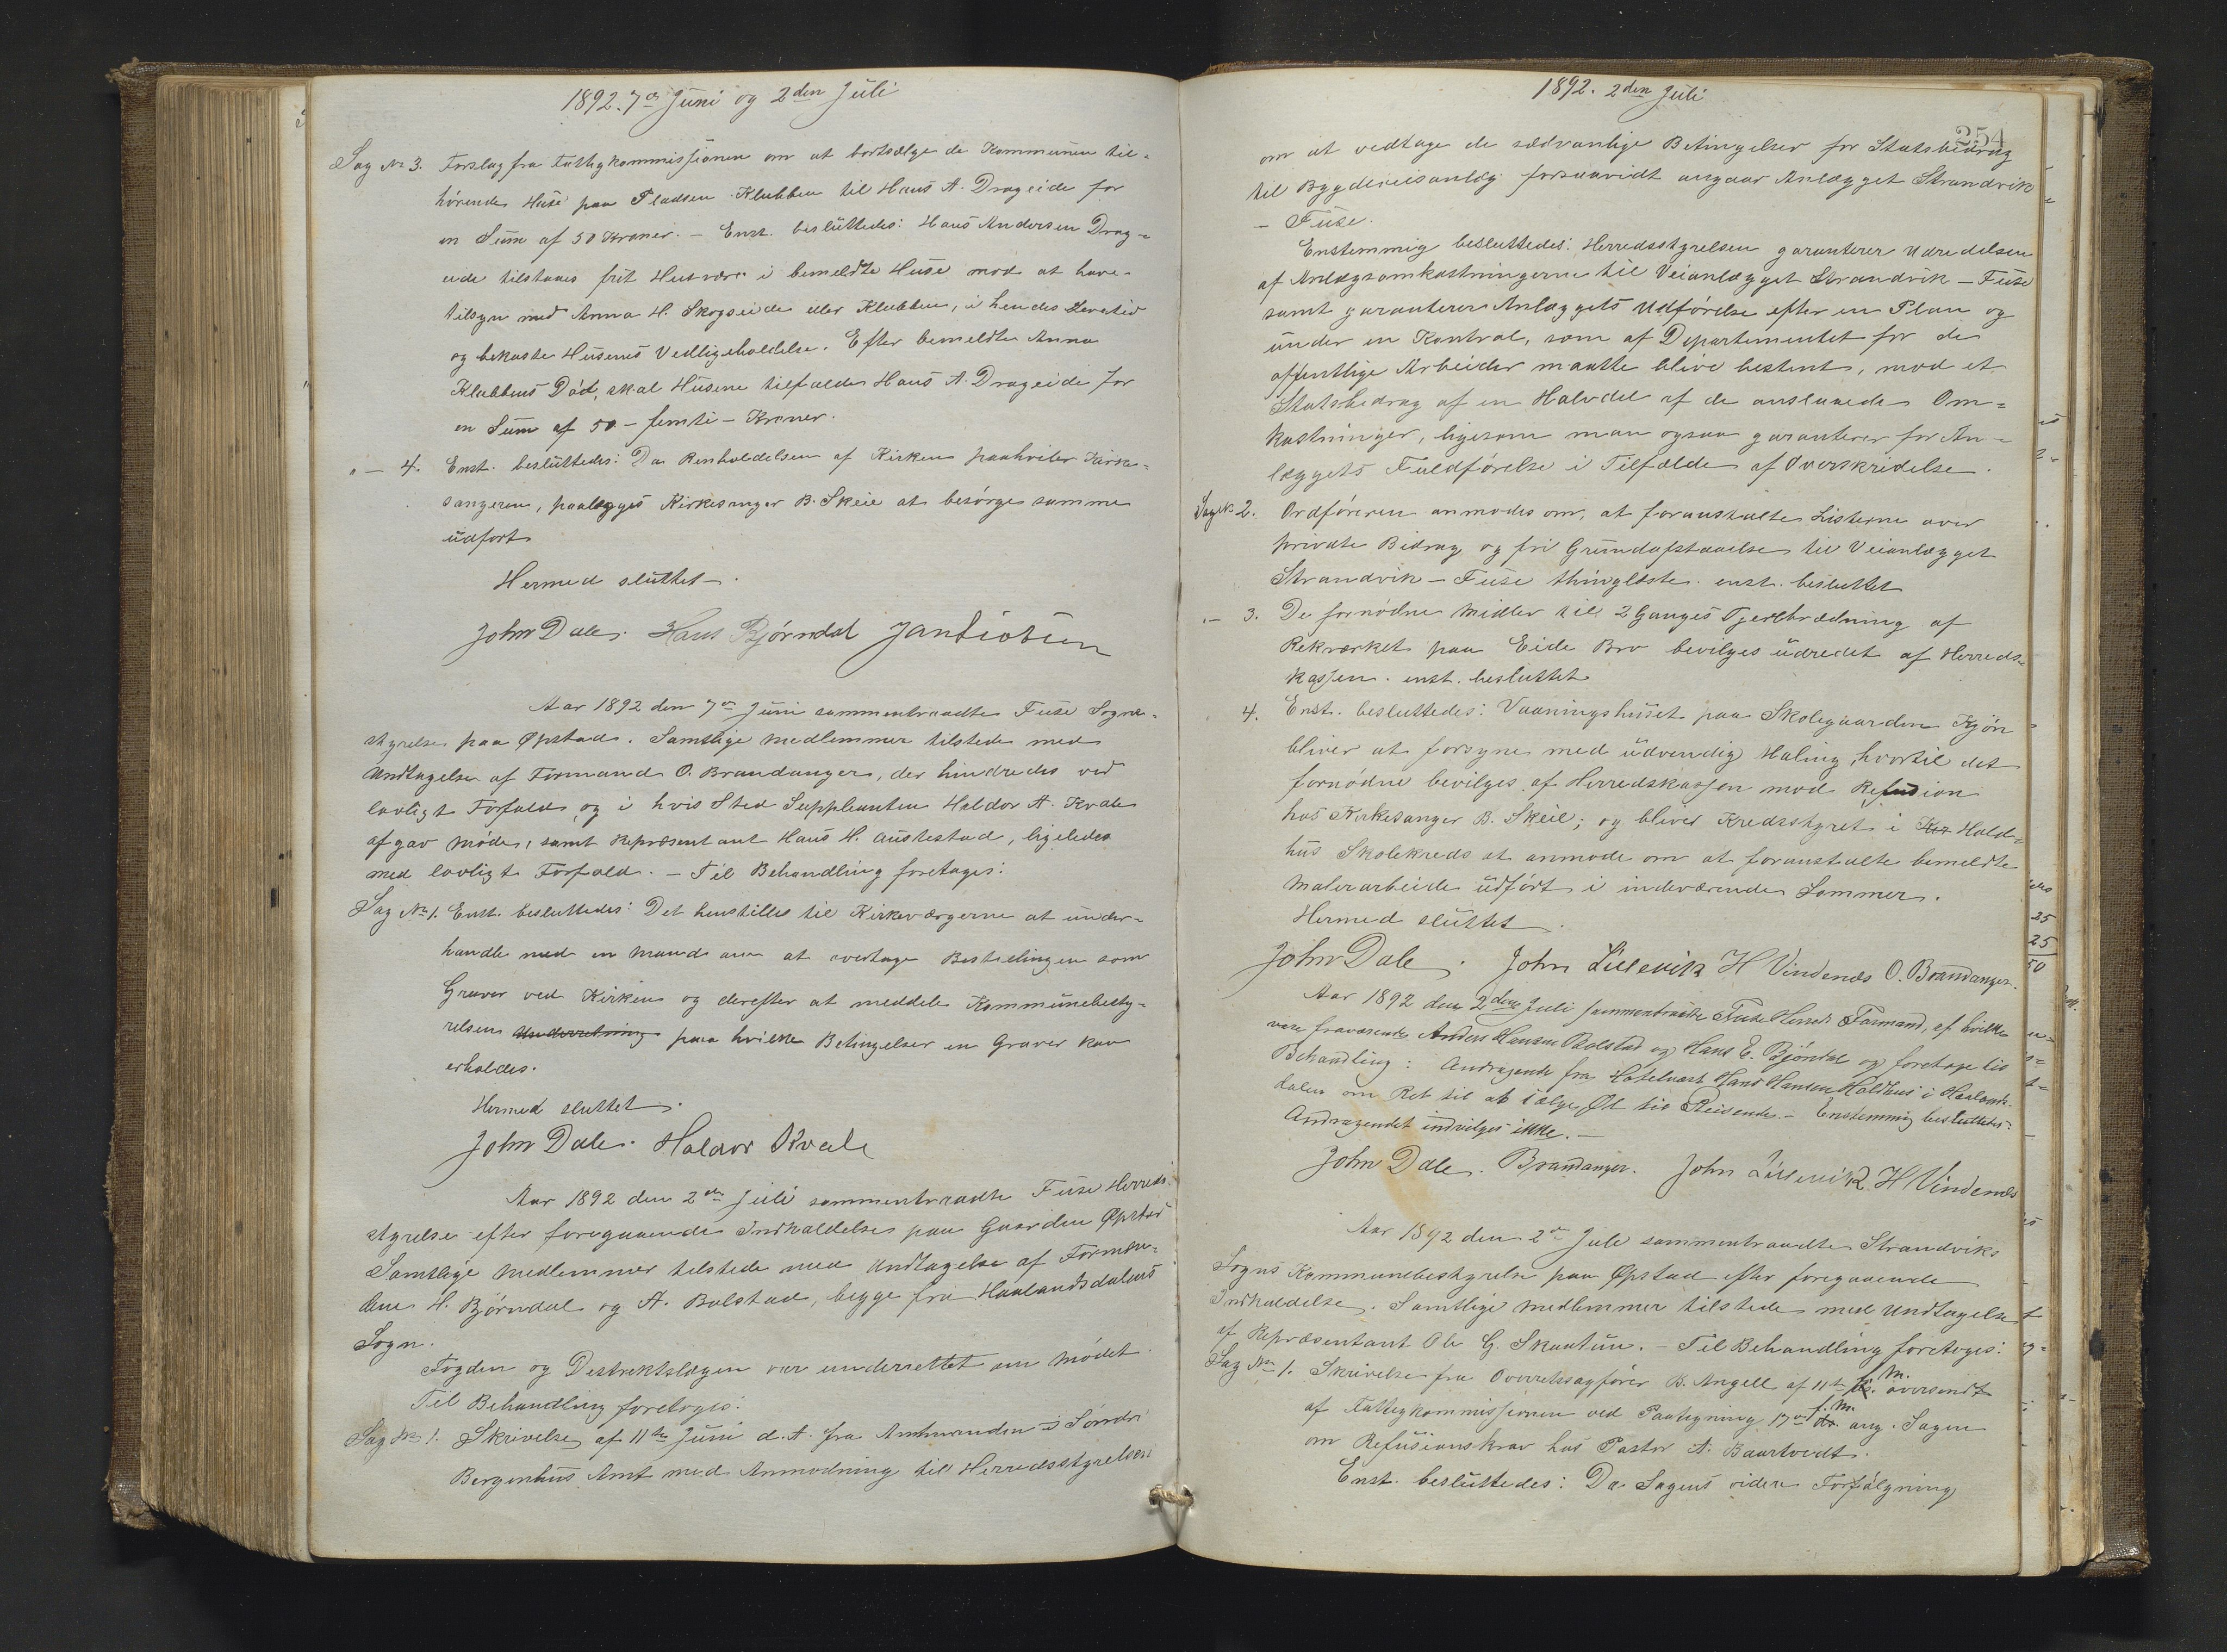 1892. 7de Juni og 2den Juli
Sag No 3. Forslag fra Fattigkommissionen om at bortsælge de Kommunen til-
hørende Huse paa Pladsen Klubben til Hans A. Drageide for
en Sum af 50 Kroner. – Enst. besluttedes: Hans Andersen Drag-
eide tilstaaes frit Husvære i bemeldte Huse mod at have
tilsyn med Anna H. Skogseide eller Klubben, i hendes Levetid
og bekoste Husenes Vedligeholdelse. Efter bemeldte Anna
Klubbens Død, skal Husene tilfalde Hans A. Drageide for
en Sum af 50 – femti – Kroner.
" – 4. Enst. besluttedes: Da Renholdelsen af Kirken paahviler Kirke-
sangeren, paalægges Kirkesanger B. Skeie at besørge samme
udført
Hermed sluttet.
John Dale. Hans Bjørndal
Aar 1892 den 7de Juni sammentraadte Fuse Sogne-
styrelse paa Øpstad. Samtlige Medlemmer tilstede med
Undtagelse af Formand O. Brandanger, der hindredes ved
lovligt Forfald og i hvis Sted Suppleanten Haldor A. Kvale
afgav Møde, samt Repræsentant Hans H. Austestad, ligeledes
med lovligt Forfald. – Til Behandling foretoges:
Sag No 1. Enst. besluttedes: Det henstilles til Kirkeværgerne at under-
handle med en Mand om at overtage Bestillingen som
Graver ved Kirken og derefter at meddele Kommunebesty-
relsen Underretning paa hvilke Betingelser en Graver kan
erholdes.
Hermed sluttet.
John Dale. Haldor Kvale
Aar 1892 den 2den Juli sammentraadte Fuse Herreds-
styrelse efter foregaaende Indkaldelse paa Gaarden Øpstad
Samtlige Medlemmer tilstede med Undtagelse af Formæn-
dene H. Bjørndal og A. Bolstad, begge fra Haalandsdalens
Sogn.
Fogden og Destriktslægen var underrettet om Mødet.
Til Behandling foretoges:
Sag No 1. Skrivelse af 11te Juni d. A. fra Amtmanden i Søndre
Bergenhus Amt med Anmodning til Herredsstyrelsen
1892. 2den Juli
254
om at vedtage de sædvanlige Betingelser for Statsbidrag
til Bygdeveisanlæg forsaavidt angaar Anlægget Strandvik
– Fuse.
Enstemmig besluttedes: Herredsstyrelsen garanterer Udredelsen
af Anlægsomkostningerne til Veianlægget Strandvik – Fuse
samt garanterer Anlæggets Udførelse efter en Plan og
under en Kontrol, som af Departementet for de
offentlige Arbeider maatte blive bestemt, mod et
Statsbidrag af en Halvdel af de anslaaede Om-
kostninger, ligesom man ogsaa garanterer for An-
læggets Fuldførelse i Tilfælde af Overskridelse.
Sag No 2. Ordføreren anmodes om, at foranstalte Listerne over
private Bidrag og fri Grundafstaaelse til Veianlægget
Strandvik – Fuse thinglæste. enst. besluttet
" – 3. De fornødne Midler til 2 Ganges Tjerebrædning af
Rekværket paa Eide Bro bevilges udredet af Herreds-
kassen. enst. besluttet
4. Enst. besluttedes: Vaaningshuset paa Skolegaarden Kjøn
bliver at forsyne med udvendig Maling, hvortil det
fornødne bevilges af Herredskassen mod Refusion
hos Kirkesanger B. Skeie; og bliver Kredsstyret i Hold-
hus Skolekreds at anmode om at foranstalte bemeldte
Malerarbeide udført i indeværende Sommer.
Hermed sluttet.
John Dale. John Lillevik H Vindenes O. Brandanger.
Aar 1892 den 2den Juli sammentraadte Fuse Herreds Formænd, af hvilke
vare fraværende Anders Hansen Bolstad og Hans E. Bjørndal og foretoges til
Behandling: Andragende fra Hotelvært Hans Hansen Holdhus i Haalands-
dalen om Ret til at sælge Øl til Reisende. – Enstemmig besluttedes:
Andragendet indvilges ikke. –
John Dale. Brandanger. John Lillevik H Vindenes
Aar 1892 den 2den Juli sammentraadte Strandviks
Sogns Kommunebestyrelse paa Øpstad efter foregaaende
Indkaldelse. Samtlige Medlemmer tilstede med Undtagelse
af Repræsentant Ole G. Skaatun. – Til Behandling foretoges:
Sag No 1. Skrivelse fra Overretssagfører B. Angell af 11te f. M. oversendt
af Fattigkommissionen ved Paategning 17de f. M. ang. Sagen
om Refusionskrav hos Pastor A. Baartvedt.
Enst. besluttedes: Da Sagens videre Forfølgning
25
25
50